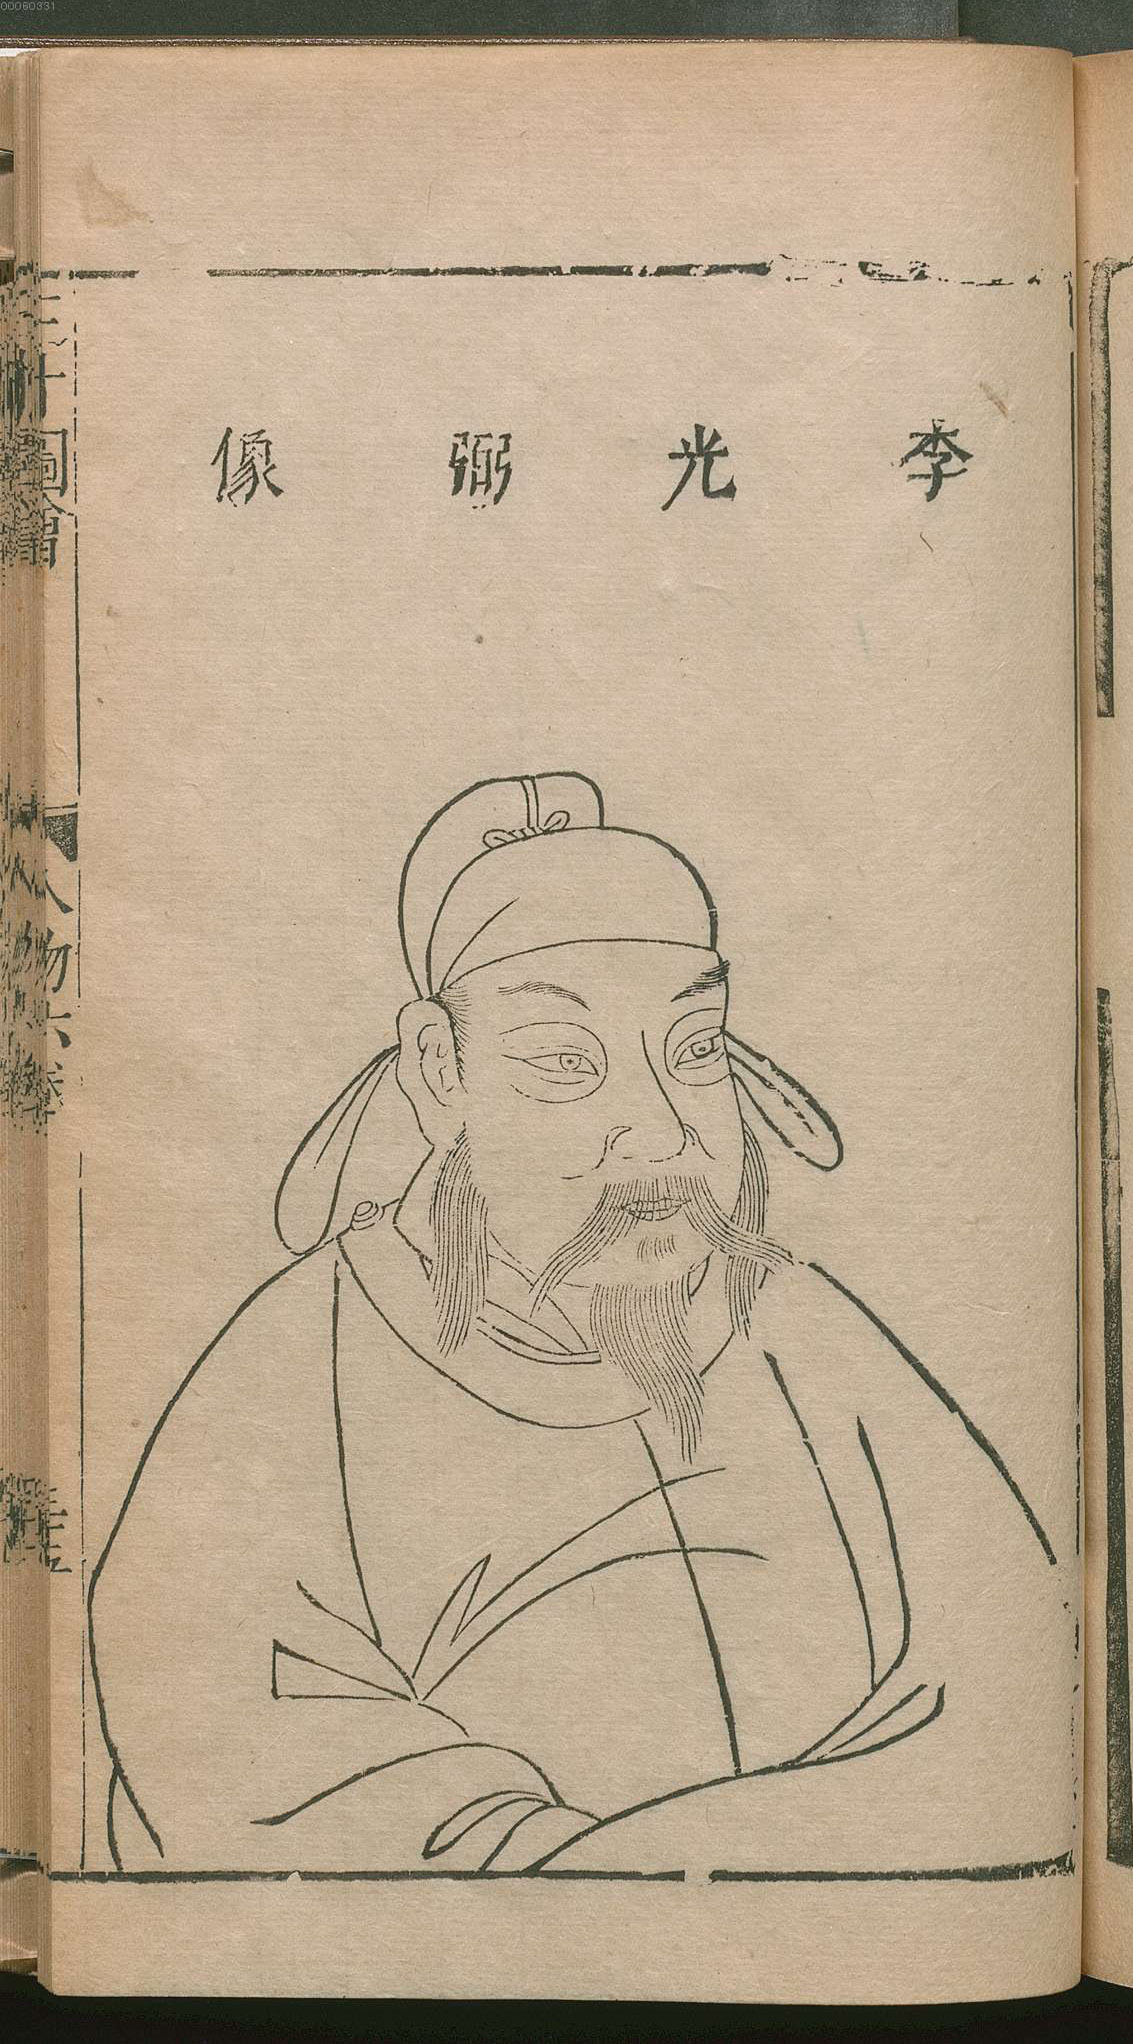 00060331
李光弼像
圖會
人物六卷